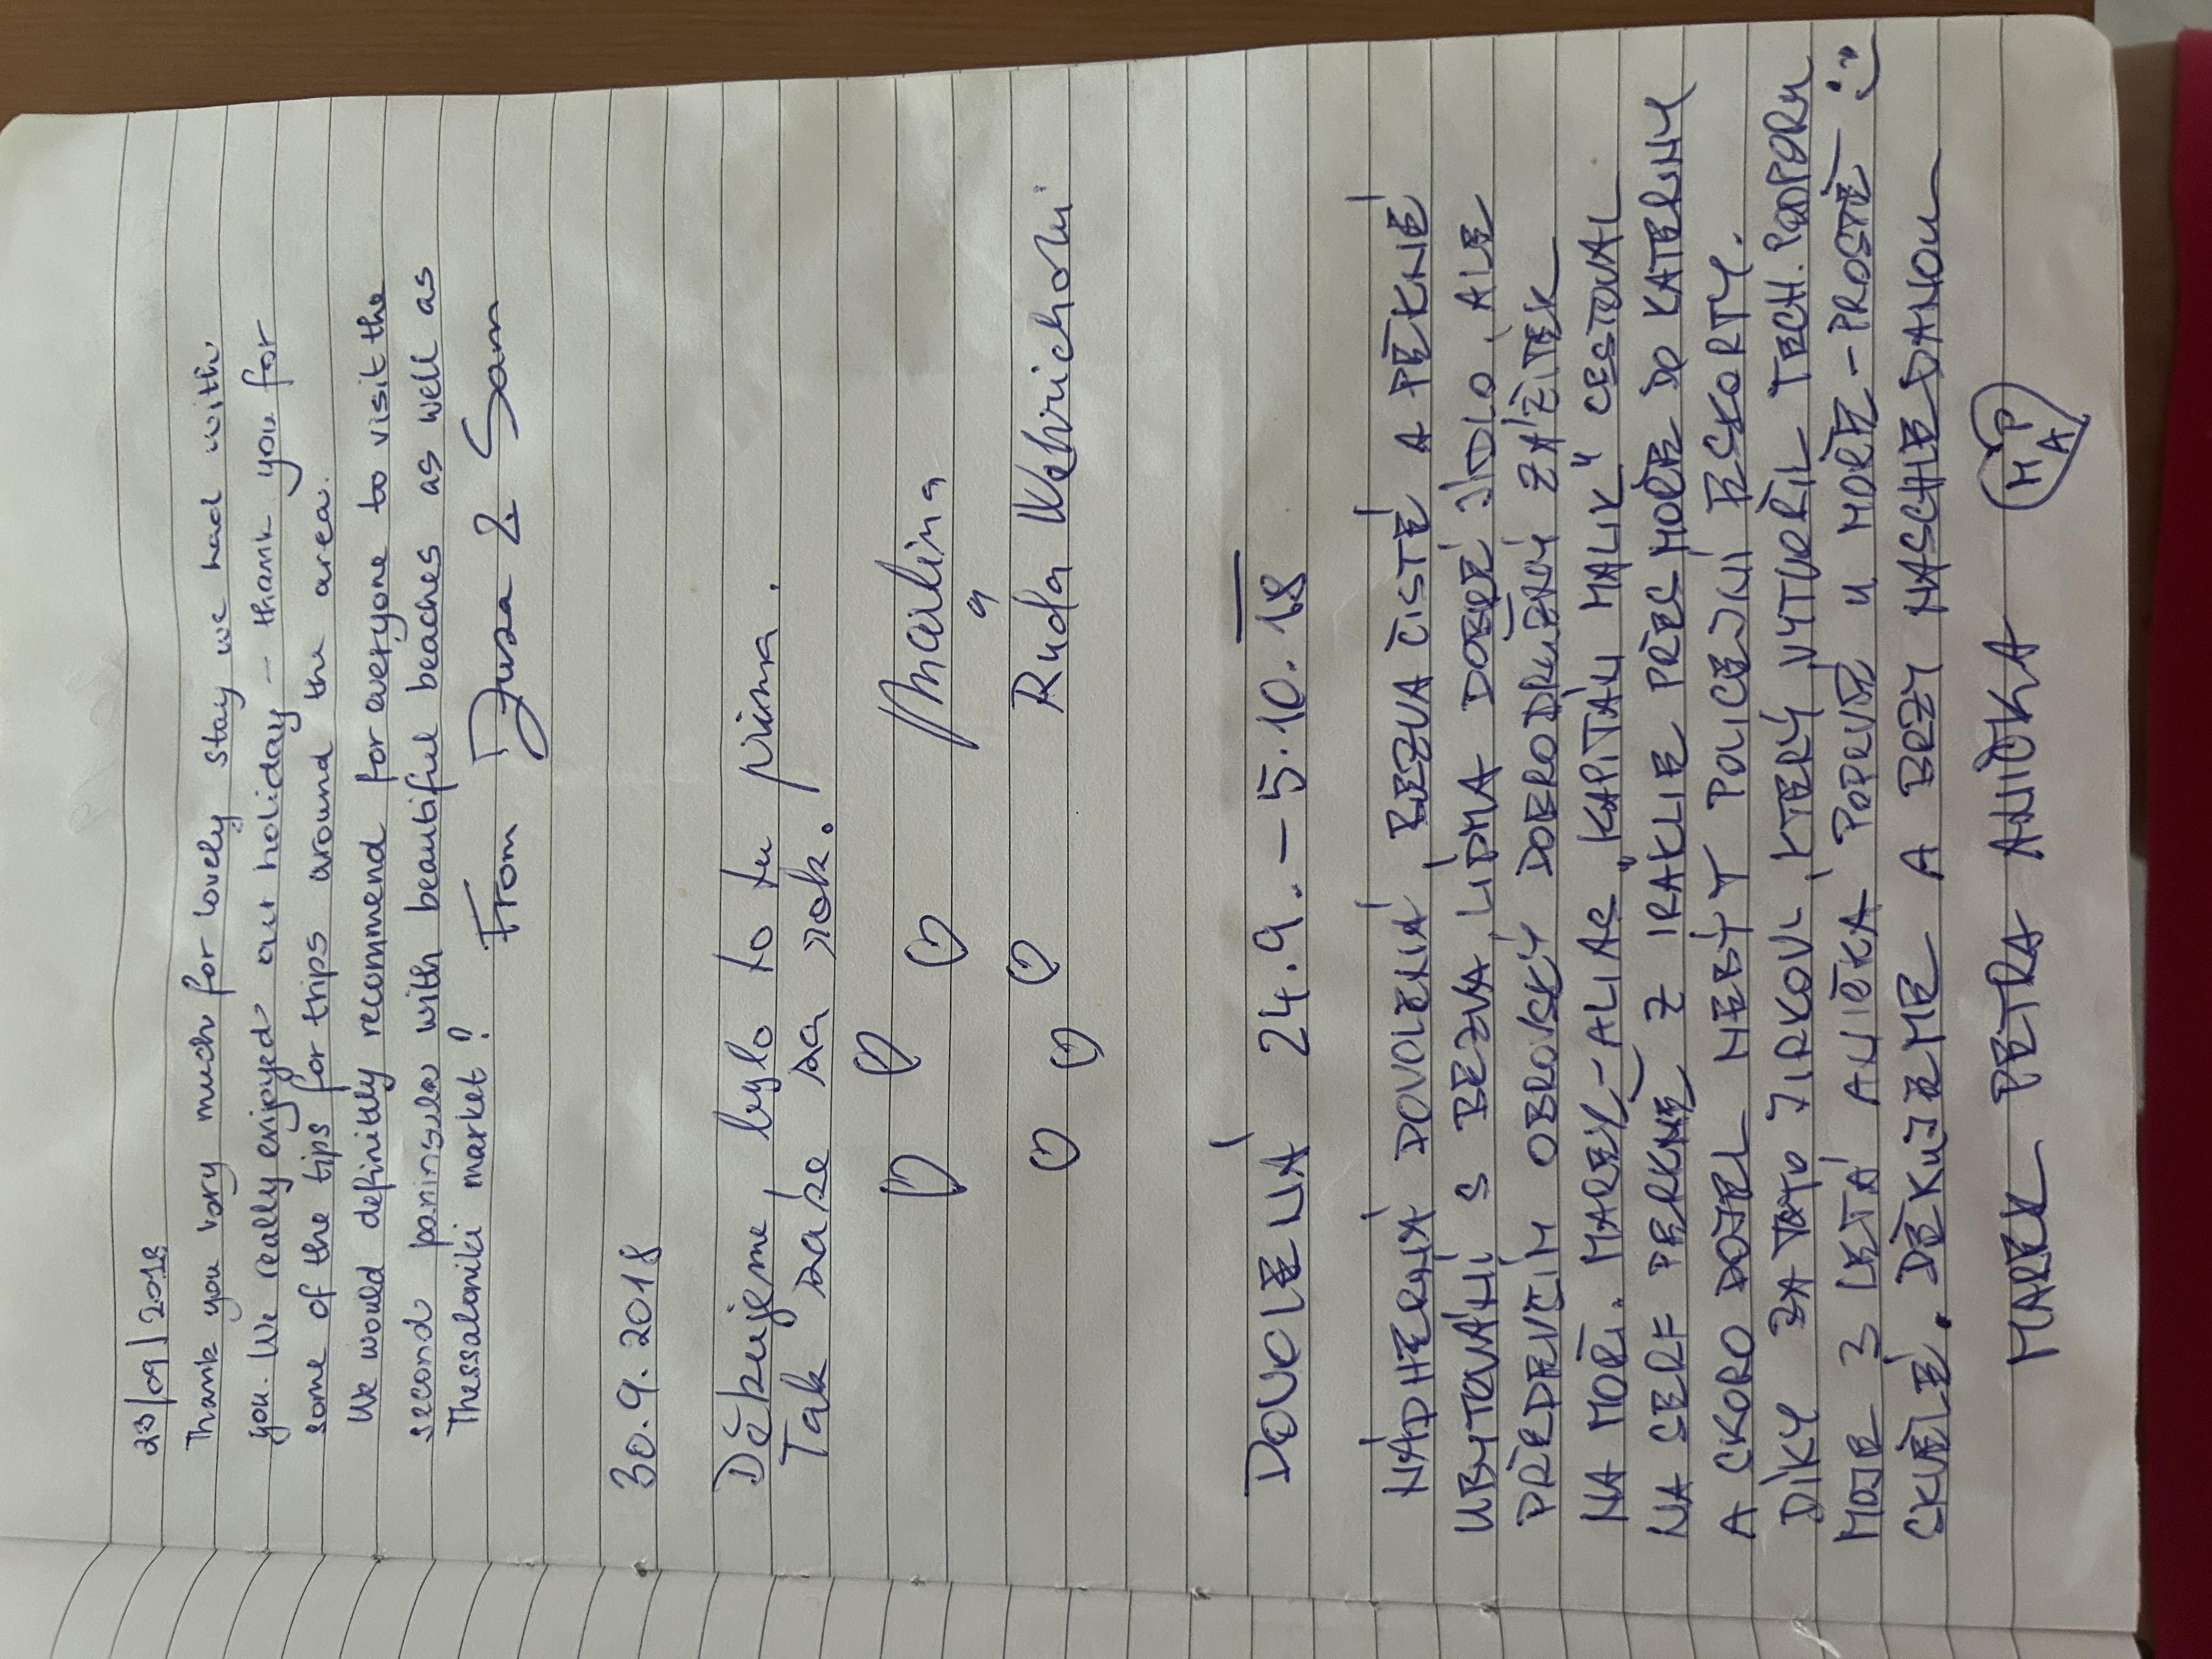 23/09/2018
Thank you vory much for lovely stay we had with
you. We really enjoyed our holiday - thank you for
some of the tips for trips around the area.
We would definittly recommend for everyone to visit the
second paninsula with beautiful beaches as well as
Thessaloniki market!
From Zuza & Sam
30.9.2018
Děkujeme, bylo to tu prima.
Tak zake za rok.
Marlina
a
Ruda
DOVOLENÁ 24.9. - 5.10.18
NÁDHERNÁ DOVOLENÁ, BEZVA ČISTÉ A PĚKNÉ
UBYTOVÁNÍ S BEZVA LIDMA DOBRÉ JÍDLO, ALE
PŘEDEVŠÍM OBROVSKÝ DOBRODRUŽNÝ ZÁŽITEK
NA MOŘI. MAREK - ALIAS „KAPITÁN MALIK" CESTOVAL
NA SERF PERKNE Z IRAKLIE PŘES MOŘE DO KATERINY
A SKORO DOJEL NEBÝT POLICEJNÍ ESKORTY.
DÍKY ZA TOTO JIRKOVI, KTERÝ VYTVOŘIL TECH. PODPORU
MOJE 3 LETÁ ANIČKA POPRVÉ U MOŘE - PROSTĚ :)
SKVĚLÉ. DĚKUJEME A BRZY NASCHLEDANOU
MAREK PETRA ANIČKA M P A